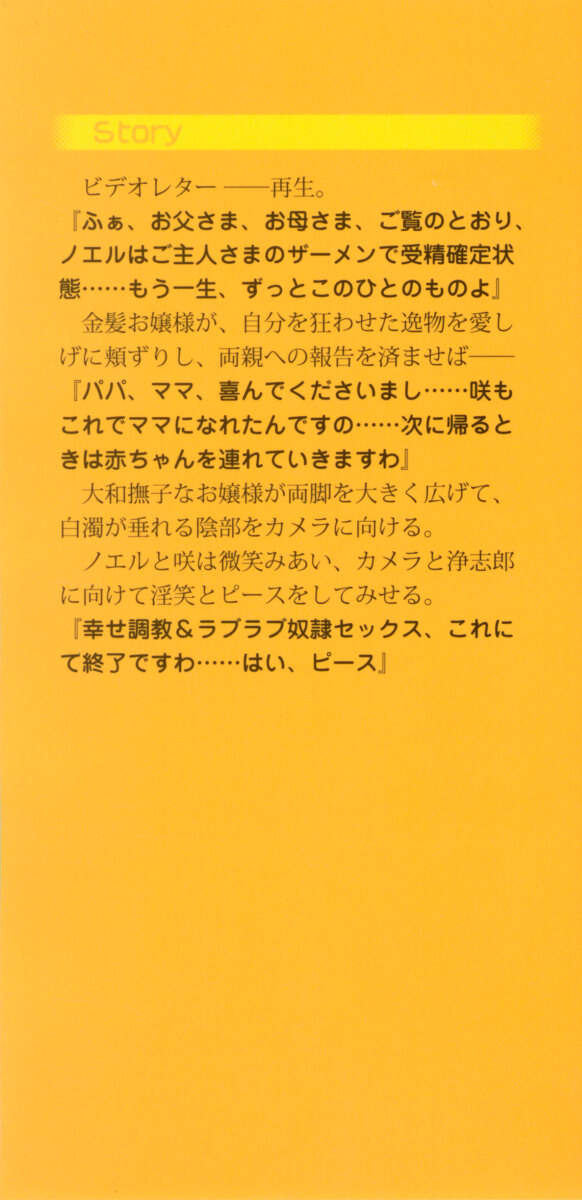 Story
ビデオレター――再生。
『ふぁ、お父さま、お母さま、ご覧のとおり、
ノエルはご主人さまのザーメンで受精確定状
態……もう一生、ずっとこのひとのものよ』
金髪お嬢様が、自分を狂わせた逸物を愛し
げに頬ずりし、両親への報告を済ませば――
『パパ、ママ、喜んでくださいまし……咲も
これでママになれたんですの……次に帰ると
きは赤ちゃんを連れていきますわ』
大和撫子なお嬢様が両脚を大きく広げて、
白濁が垂れる陰部をカメラに向ける。
ノエルと咲は微笑みあい、カメラと浄志郎
に向けて淫笑とピースをしてみせる。
『幸せ調教＆ラブラブ奴隷セックス、これに
て終了ですわ……はい、ピース』